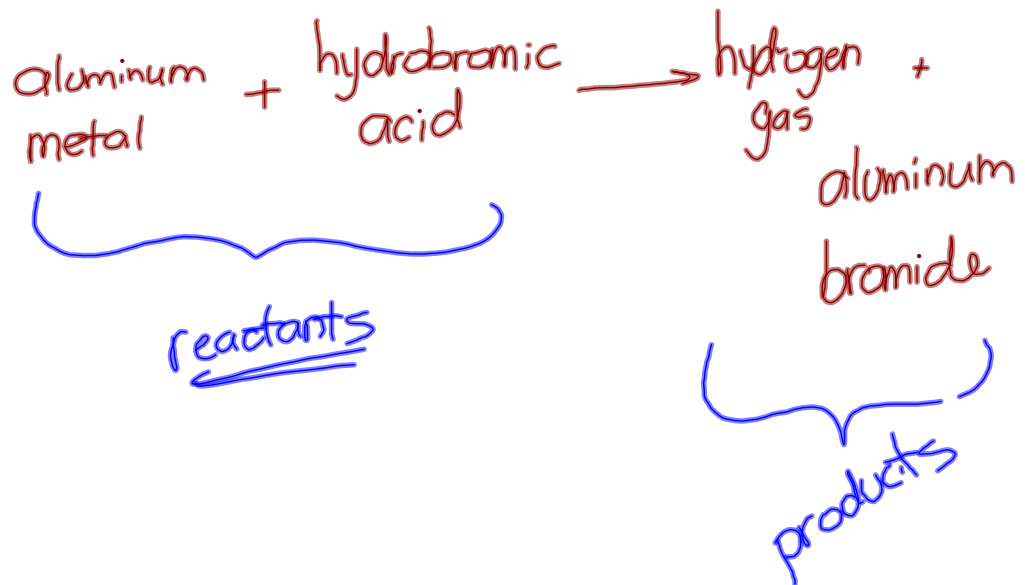 aluminum metal + hydrobromic acid → hydrogen gas +
aluminum
bromide
reactants
products